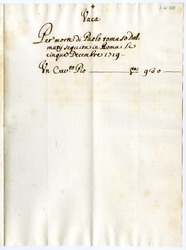 +
Vaca
Per morte di Paolo romaso Dal
mati seguita in Roma li
cinque Decembre 1719
Un Cav.to Pio 9:50